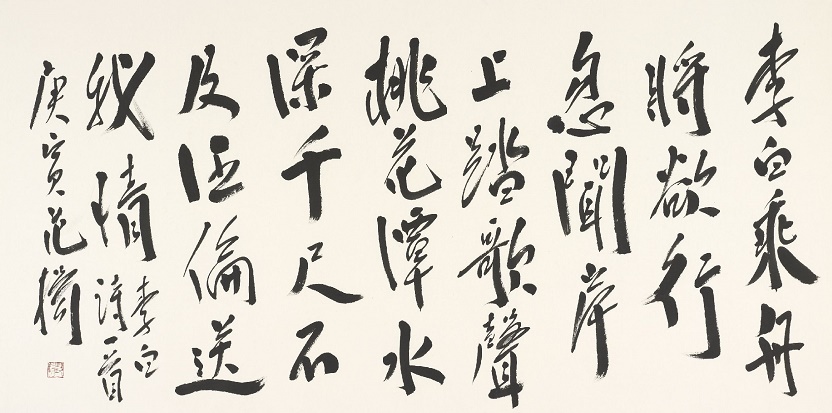 李白乘舟
將欲行
忽聞岸
上踏歌聲
桃花潭水
深千尺不
及汪倫送
我情
李白
詩一首
庚寅